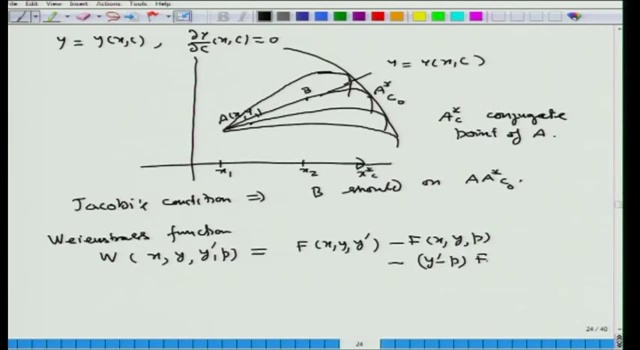 Edit View Insert Actions Tools Help
y = Y(x,c) , ∂Y/∂c (x,c) = 0
y = Y(x,c)
B
A*c₀
A(x₁,y₁)
A*c conjugate
point of A.
x₁ x₂ x*c
Jacobi's condition ⇒ B should on AA*c₀.
Weierstrass function
W(x, y, y', p) = F(x,y,y') - F(x,y,p)
- (y'-p) F
24 / 40
24